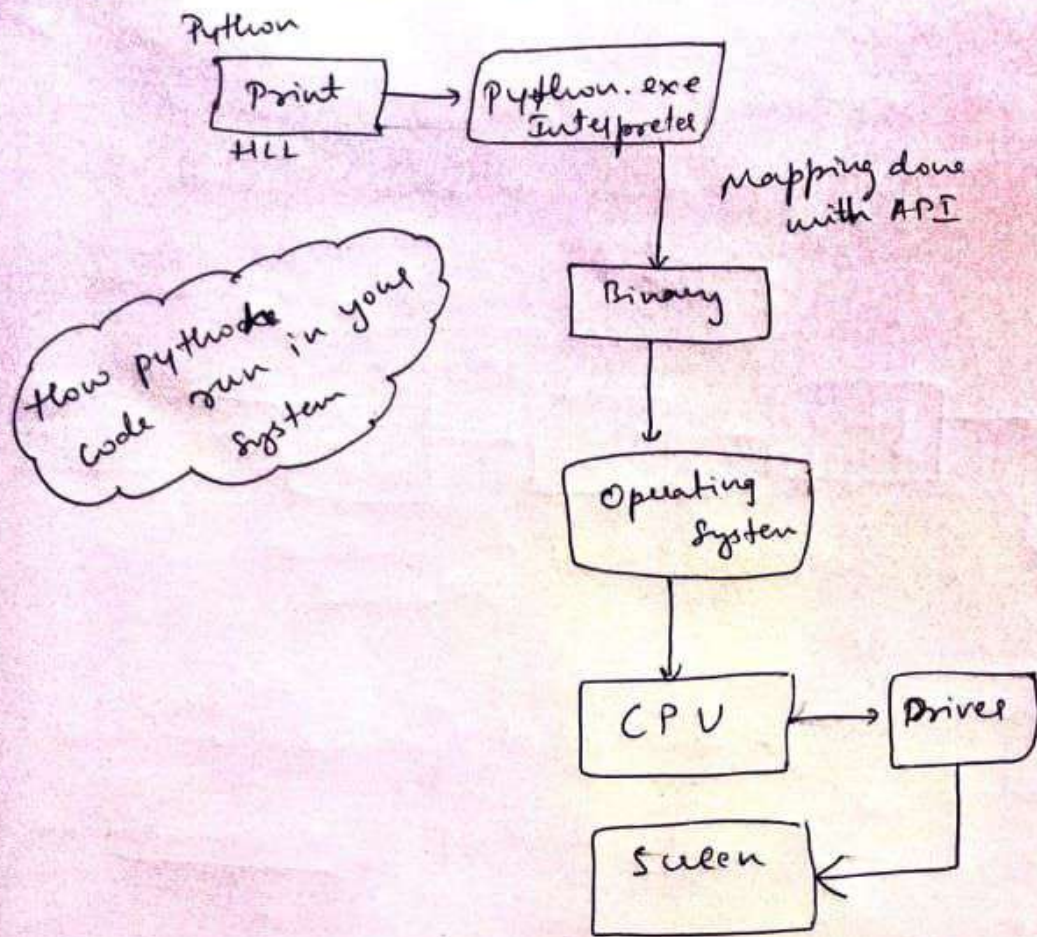 Python
Print
HLL
Python.exe
Interpreter
Mapping done
with API
Binary
How python
code run in your
system
Operating
System
CPU
Driver
Screen